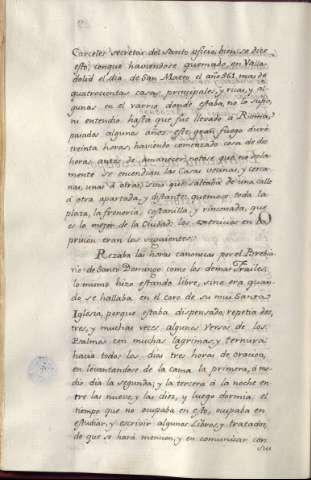 Carceler secretar del Santo oficio, bien se dize
esto, conque haviendose quemado, en Valla-
dolid el dia de San Mateo el año 561, mas de
quatrocientas casas, principales, y ricas, y al-
gunas en el varrio donde estaba, no lo supo,
ni entendio hasta que fue llevado a Roma,
pasados algunos años: este gran fuego duró
treinta horas, haviendo comenzado cosa de dos
horas antes de Amanecer, notase que no sola-
mente se encendian las casas vecinas, y cerca-
nas, unas á otras, sino que saltaba de una calle
á otra apartada, y distante, quemose toda la
plaza, la freneria, costanilla y rinconada, que
es lo mejor de la Ciudad: los exercicios en la
prision eran los siguientes:
Rezaba las horas canonicas por el Brebia-
rio de Santo Domingo como los demas Frailes,
lo mismo hizo estando libre, sino era quan-
do se hallaba en el coro de su mui Santa
Iglesia, porque estaba dispensado, repetia dos,
tres, y muchas veces algunos versos de los
Psalmos con muchas lagrimas, y ternura:
hacia todos los dias tres horas de oracion,
en levantandose de la cama la primera, á me-
dio dia la segunda; y la tercera á la noche en-
tre las nueve, y las diez, y luego dormia; el
tiempo que no ocupaba en esto, ocupaba en
estudiar, y escrivir algunos Libros, y tratados,
de que se hará mencion, y en comunicar con
sus